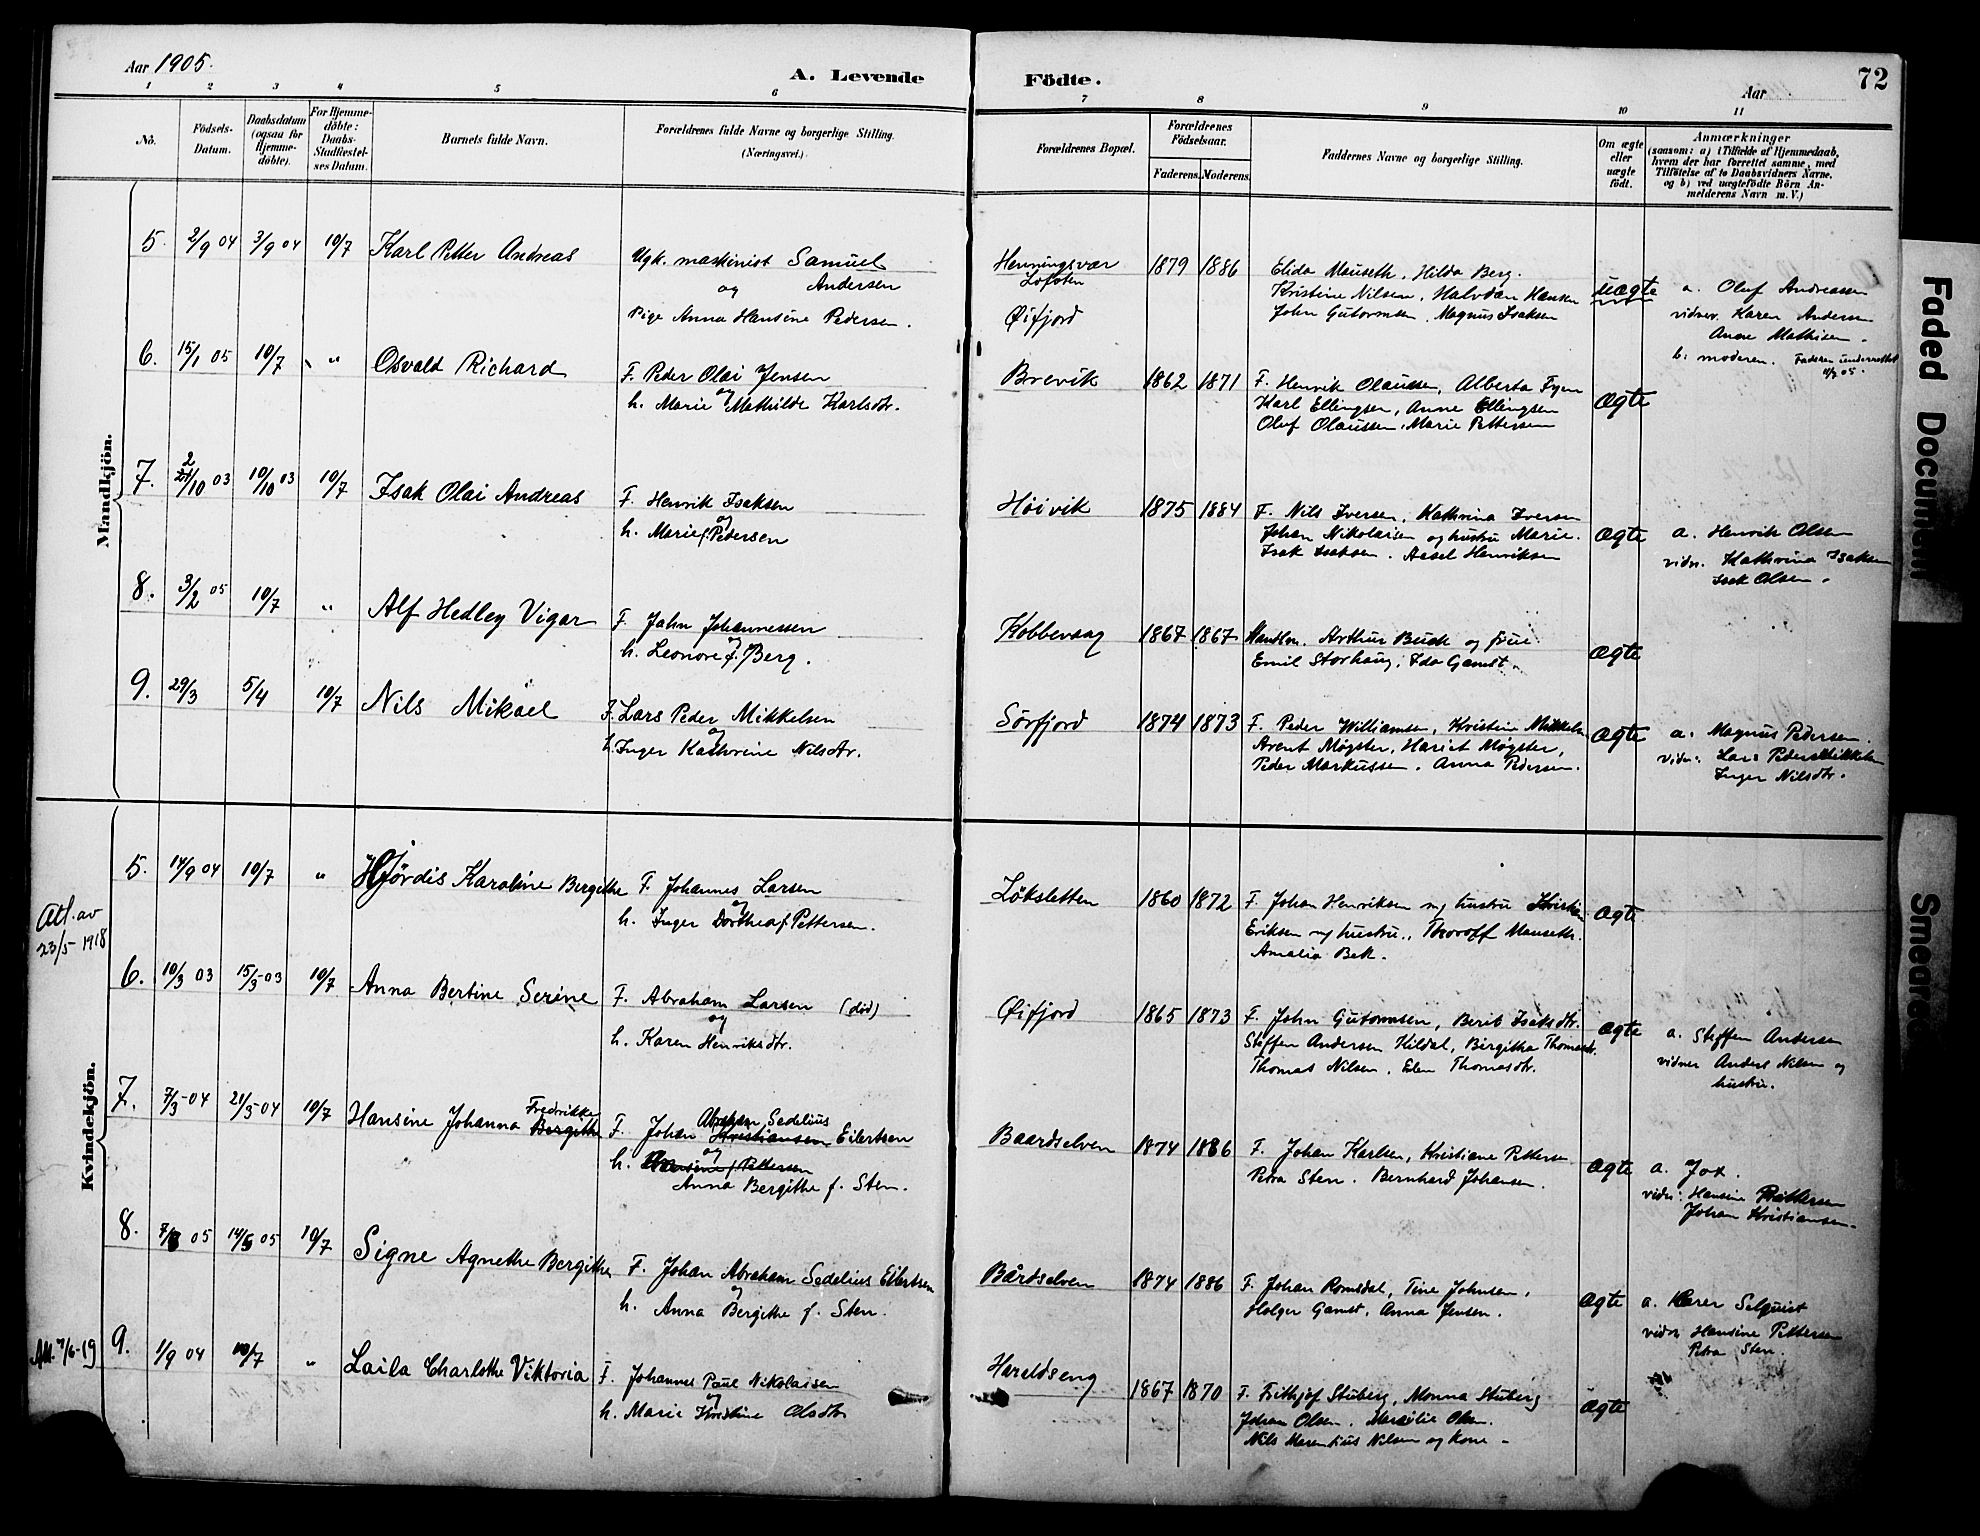 Aar 1905.
A. Levende Födte.
Aar
72
1 2 3 4 5 6 7 8 9 10 11
No.
Födsels-
Datum.
Daabsdatum
(ogsaa for
Hjemme-
döbte).
For Hjemme-
döbte:
Daabs-
Stadfæstel-
ses Datum.
Barnets fulde Navn.
Forældrenes fulde Navne og borgerlige Stilling.
(Næringsvei.)
Forældrenes Bopæl.
Forældrenes
Födselsaar.
Faderens. Moderens.
Faddernes Navne og borgerlige Stilling.
Om ægte
eller
uægte
födt.
Anmærkninger
(saasom: a) i Tilfælde af Hjemmedaab,
hvem der har forrettet samme, med
Tilföielse af to Daabsvidners Navne,
og b) ved uægtefödte Börn An-
melderens Navn m. V.)
Mandkjön.
5. 2/9 04 3/9 04 10/7 Karl Petter Andreas
Ugk. maskinist Samuel
og Andersen
Pige Anna Hansine Pedersen.
Henningsvær
Lofoten
Øifjord
1879 1886
Elida Mauseth, Hilda Berg.
Kristine Nilsen, Halvdan Hansen
John Gutormsen, Magnus Isaksen
uægte
a. Oluf Andreassen
vidner. Karen Andersen
Anne Mathisen.
b: moderen. Faderen underrettet
05.
6. 15/1 05 10/7 " Osvald Richard
F. Peder Olai Jensen
og
h. Marie Mathilde Karlsdtr.
Brevik 1862 1871
F. Henrik Olaussen, Alberta
Karl Ellingsen, Anne Ellingsen
Oluf Olaussen, Marie Pettersen
ægte
7. 2/10 03 10/10 03 10/7 Isak Olai Andreas
F. Henrik Isaksen
og
h. Marie f. Pedersen
Höivik 1875 1884
F. Nils Iversen, Kathrina Iversen
Johan Nikolaisen og hustru Marie.
Isak Isaksen. Aksel Henriksen
ægte
a. Henrik Olsen
vidn. Kathrina Isaksen
Isak Olsen.
8. 3/2 05 10/7 " Alf Hedley Vigar
F. John Johannessen
og
h. Leonore f. Berg.
Kobbevaag 1867 1867
Handlm. Arthur Buck og frue
Emil Storhaug, Ida Gamst.
ægte
9. 29/3 5/4 10/7 Nils Mikael
F. Lars Peder Mikkelsen
og
h. Inger Kathrine Nilsdtr.
Sörfjord 1874 1873
F. Peder Williamsen, Kristin Mikkelsen
Arent Møgster, Hariet Møgster,
Peder Markussen. Anna Pedersen.
ægte
a. Magnus Pedersen.
vidn: Lars Peder Mikkelsen
Inger Nilsdtr.
Kvindekjön.
Att. av
23/5 1918
5. 14/9 04 10/7 " Hjørdis Karoline Bergithe
F. Johannes Larsen
og
h. Inger Dorthea f. Pettersen.
Løksletten 1860 1872
F. Johan Henriksen og hustru Kristian
Eriksen og hustru, Thoroff Mauseth.
Amalia Bek.
ægte
6. 10/3 03 15/3-03 10/7 Anna Bertine Serine
F. Abraham Larsen (död)
og
h. Karen Henriksdtr.
Øifjord 1865 1873
F. John Gutormsen, Berit Isaksdtr.
Steffen Andersen Hildal, Birgitha Thomasdtr.
Thomas Nilsen, Elen Thomasdtr.
ægte
a. Steffen Andersen
vidner Anders Nilsen og
hustru.
7. 7/3-04 21/3-04 10/7 Hansine Johanna Fredrikke Bergithe
F. Johan Abraham Sedelius Kristiansen Eilertsen
og
h. Hansine f. Pettersen
Anna Bergithe f. Sten.
Baardselven 1874 1886
F. Johan Karlsen, Kristiane Pettersen
Petra Sten. Bernhard Johansen.
ægte
a. Jox.
vidn: Hansine Pettersen
Johan Kristiansen.
8. 05 05 10/7 Signe Agnethe Bergithe
F. Johan Abraham Sedelius Eilertsen
og
h. Anna Bergithe f. Sten.
Bårdselven 1874 1886
F. Johan Romsdal, Tine Johnsen,
Holger Gamst, Anna Jensen.
ægte
a. Karer Selquist
vidn; Hansine Pettersen
Petra Sten.
Att. 7/6-19
9. 1/9 04 10/7 " Laila Charlothe Viktoria
F. Johannes Paul Nikolaisen
og
h. Marie Kristine Olsdtr
Hareldseng 1867 1870
F. Frithjof Stuberg, Monna Stuberg
Johan Olsen. Olsen.
Nils Marentius Nilsen og kone.
ægte
Faded Document
Smeared